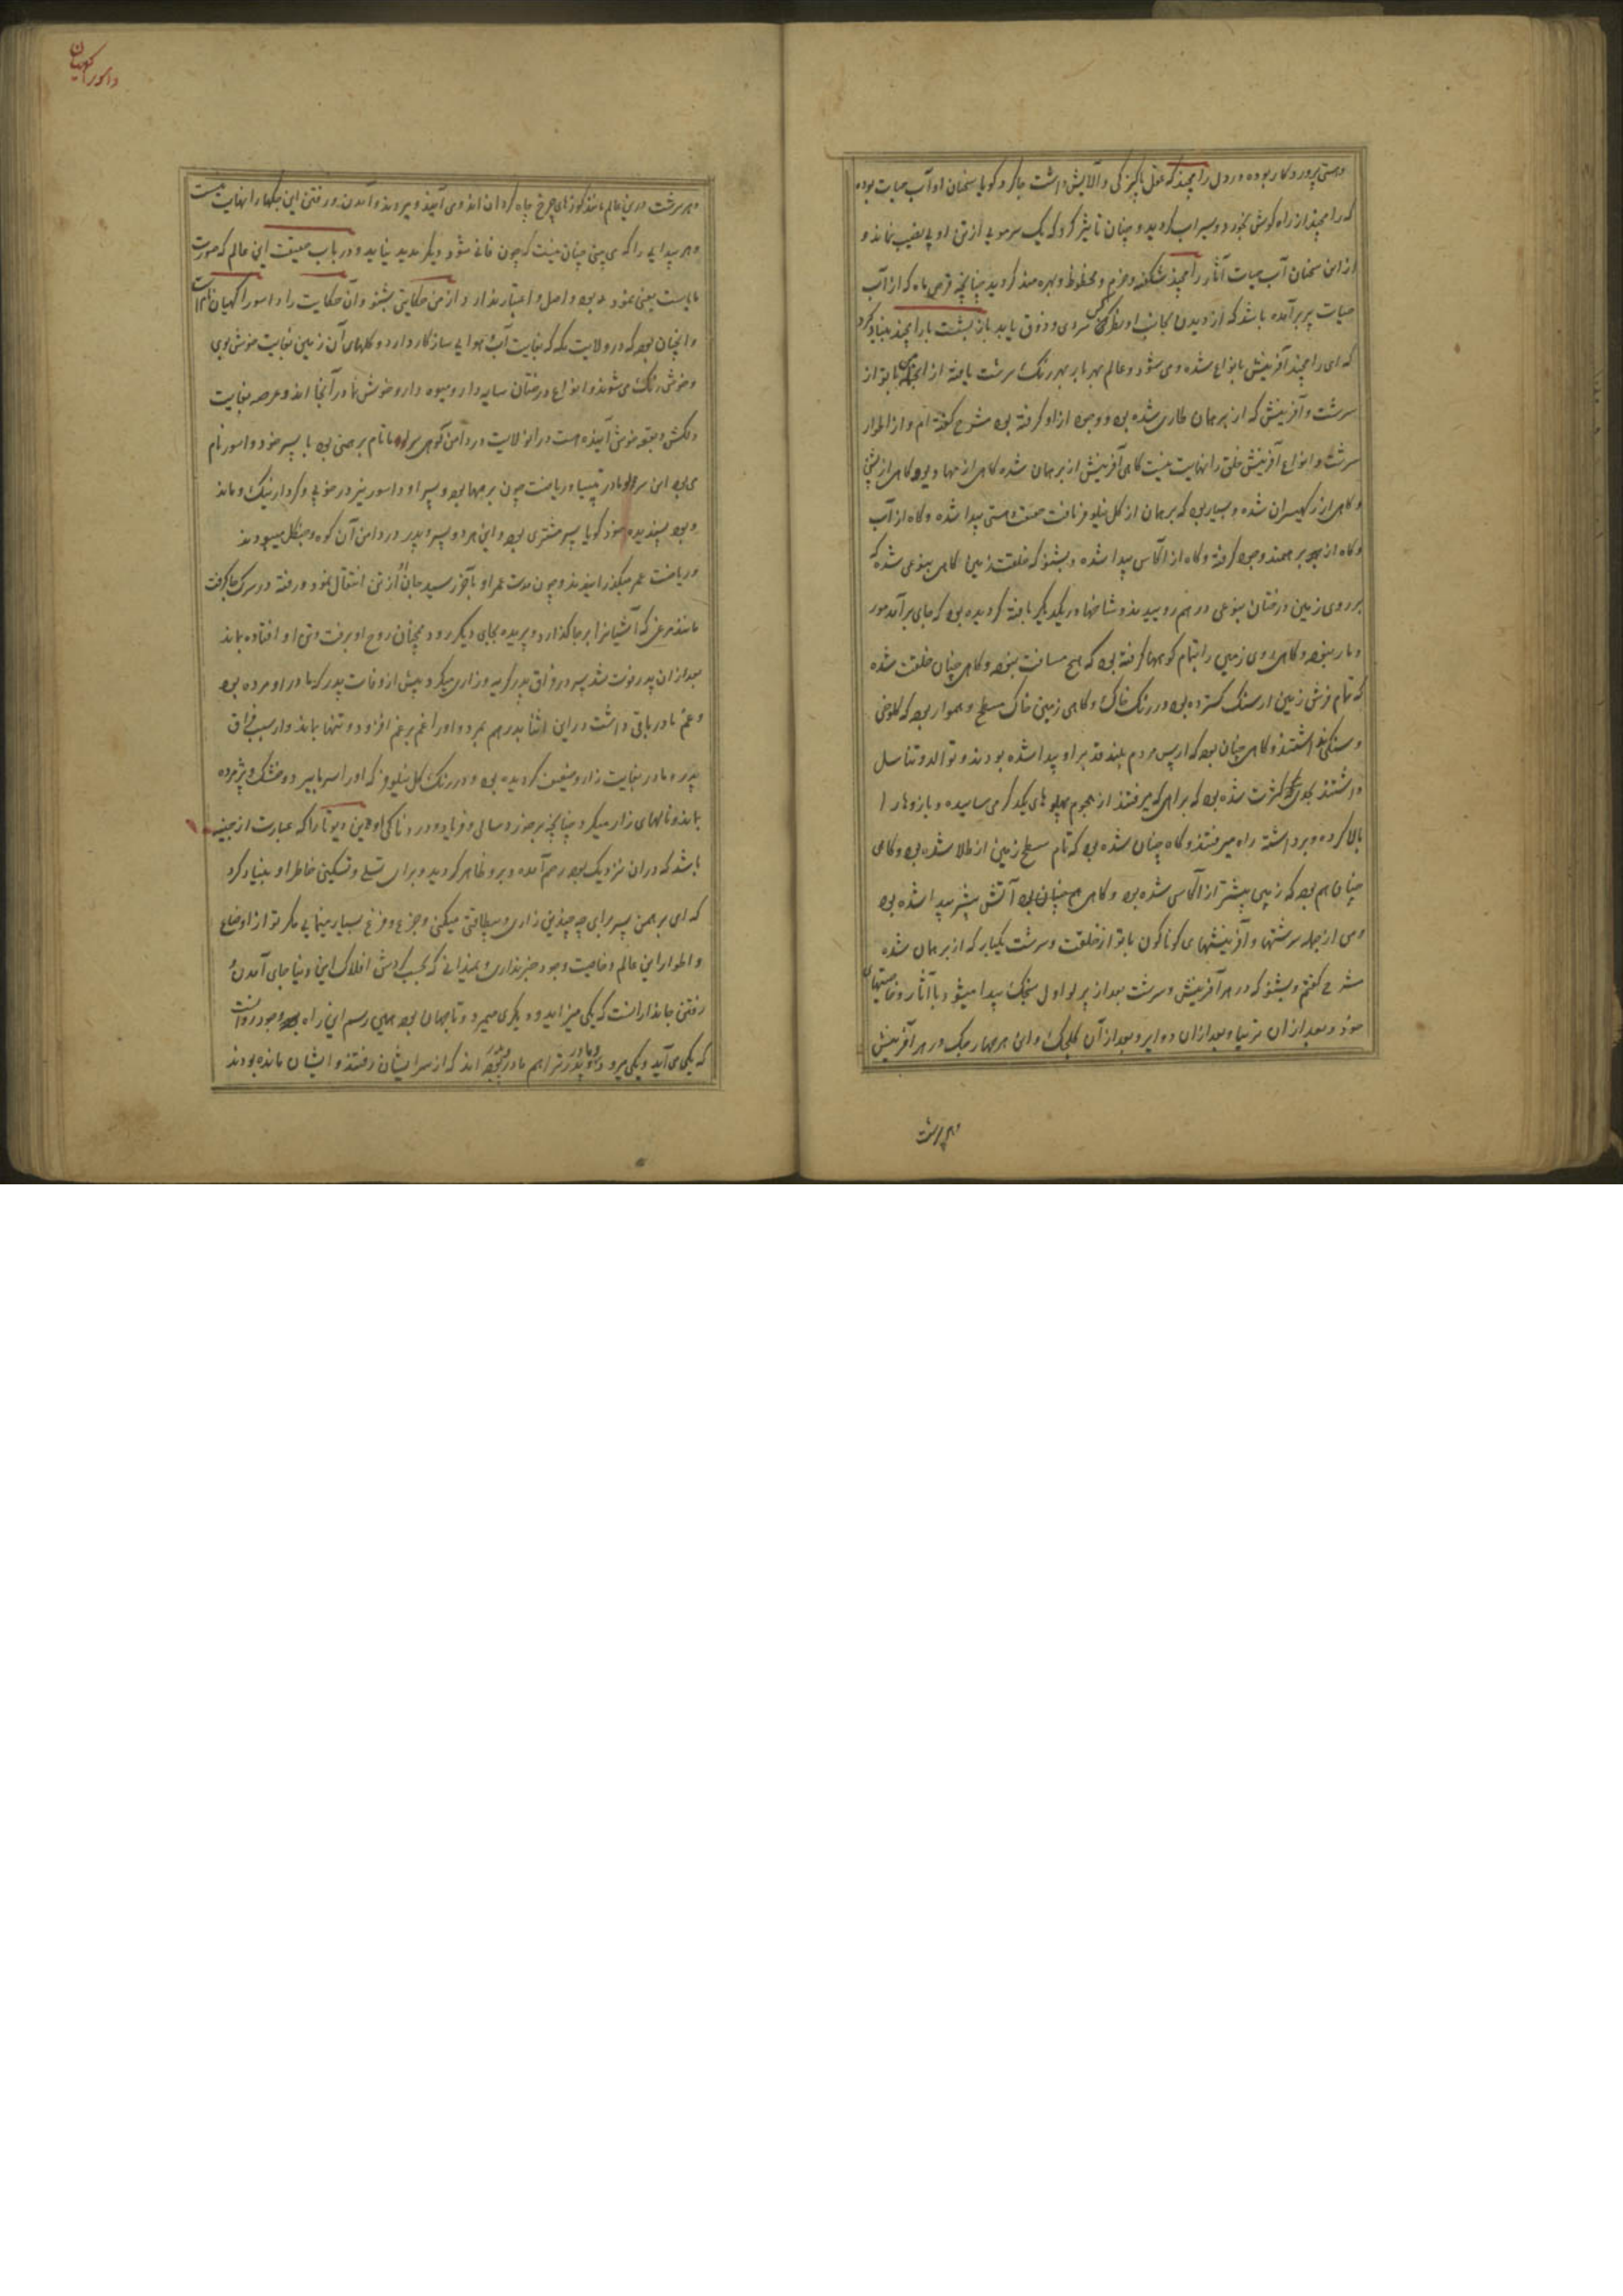 وهستی پروردگار بوده در دل رامچند که عقل پاکیزگی و آلایش داشت جا کرد گویا سخنان او آب حیات بوده
که رامچند از راه گوش بخورد و سیراب گردید و چنان تاثیر کرد که یک سر مویی از تن او بی نصیب نماند و
از این سخنان آب حیات آثار رامچند شگفته و خرم و محظوظ و بهره مند گردید چنانچه قرص ماه که از آب
حیات پر برآمده باشد که از دیدن بجانب او نظر کس سروی و ذوق یابد باز بشست با رامچند بنیاد کرد
که ای رامچند آفرینش بانواع شده و می شود و عالم هر بار بهر رنگ سرشت یافته از آنجمله با تو از
سرشت و آفرینش که از برمهان طاری شده بود و وجود از او گرفته بود مشرح گفته ام و از اطوار
سرشت و انواع آفرینش خلق را نهایت نیست گاهی آفرینش از برمهان شده گاهی از مهادیو و گاهی از بشن
و گاهی از رکهیسران شده و بسیار بود که برمهان از گل نیلوفر نافت صفت هستی پیدا شده و گاه از آب
و گاه از برهمند وجود گرفته و گاه از آکاس پیدا شده و بشنو که خلقت زمین گاهی بنوعی شده که
بر روی زمین درختان بنوعی در هم روییدند و شاخها در یکدیگر بافته گردیده بود که جای برآمد مور
و مار نبود و گاهی روی زمین را بتمام کوهها گرفته بود که هیچ مسافت نبود و گاهی چنان خلقت شده
که تمام فرش زمین از سنگ گسترده بود در رنگ خاک و گاهی زمین خاک مسطح و هموار بود که کلوخی
و سنگی نداشتند و گاهی چنان بود که از پس مردم بلند قد بر او پیدا شده بودند و توالد و تناسل
داشتند بحدی کثرت شده بود که براهی که میرفتند از هجوم پهلوهای یکدگر می سایید و بازوها را
بالا کرده و برداشته راه میرفتند و گاه چنان شده بود که تمام سطح زمین از طلا شده بود و گاهی
چنان هم بود که زمین پیشتر از آکاس شده بود و گاهی هم چنان بود آتش پیشتر پیدا شده بود
و من از جمله سرشتها و آفرینشهای گوناگون با تو از خلقت و سرشت یکبار که از برمهان شده
مشرح گفتم و بشنو که در هر آفرینش و سرشت بعد از پرلو اول ستجگ پیدا میشود با آثار و خاصیتهای
خود و بعد از ان ترتیا و بعد از ان دواپر و بعد از آن کلجگ و این هر چهار جگ در هر آفرینش
و هر سرشت
دا سور کهیان
و هر سرشت در این عالم مانند کوزهای چرخ چاه گردان اند و می آیند و میروند و آمدن و رفتن این جگها را نهایت نیست
و هر پیدایی را که می بینی چنان نیست که چون فانی شود دیگر پدید نیاید و در باب حقیقت این عالم که صورت
مایاست یعنی نمود بی بود و اصل و اعتبار ندارد از من حکایتی بشنو و آن حکایت را داسور اکهیان نامست
و آنچنان بود که در ولایت مگه که بغایت آب و هوایی سازگار دارد و گلهای آن زمین بغایت خوش بوی
و خوش رنگ می شوند و انواع درختان سایه دار و میوه دار و خوش نما در آنجا اند و عرصه بغایت
دلکش و بقعه خوش آینده هست در ان ولایت در دامن کوهی سرلوما نام برهمنی بود با پسر خود داسور نام
می بود این سرلوما در تپسیا و ریاضت چون برمهما بود و پسر او داسور نیز در خوبی و کردار نیک و مانند
پدر بود پسندیده خود گویا پسر مشتری بود و این هر دو پسر و پدر در دامن آن کوه و جنگل میبودند
و ریاضت عمر میگذرانیدند و چون مدت عمر او بآخر رسید جان او از تن انتقال نمود و رفته در سرگ جا گرفت
مانند مرغی که آشیانرا بر جا گذارد و پریده بجای دیگر رود همچنان روح او برفت و تن او افتاده ماند
بعد از ان پدر فوت شد پسر در فراق پدر گریه و زاری میکرد و پیش از وفات پدر که مادر او مرده بود
و غم مادر باقی داشت در این اثنا پدر هم بمرد و او را غم بر غم افزود و تنها بماند و از سبب فراق
پدر و مادر بغایت زار و ضعیف گردیده بود و در رنگ گل نیلوفر که او را سرما ببرد و خشک و پژمرده
بماند و نالهای زار میکرد چنانچه بر خورد سالی و فریاد و دردناکی او بن دیوتا را که عبارت از جنیه
باشد که در ان نزدیک بود رحم آمده و برو ظاهر گردید و برای تسلی و تسکین خاطر او بنیاد کرد
که ای برهمن پسر برای چه چندین زاری و بیطاقتی میکنی و جزع و فزع بسیار مینمایی مگر تو از اوضاع
و اطوار این عالم و خاصیت وجود خبر نداری و نمیدانی که بحسب گردش افلاک این دنیا جای آمدن و
رفتن جاندارانست که یکی میزاید و دیگری میمیرد و تا جهان بود همین رسم این راه وجود روانست
که یکی می آید و یکی میرود و مادر و پدر ترا هم مادر و پدر بوده اند که از سر ایشان رفتند و ایشان مانده بودند